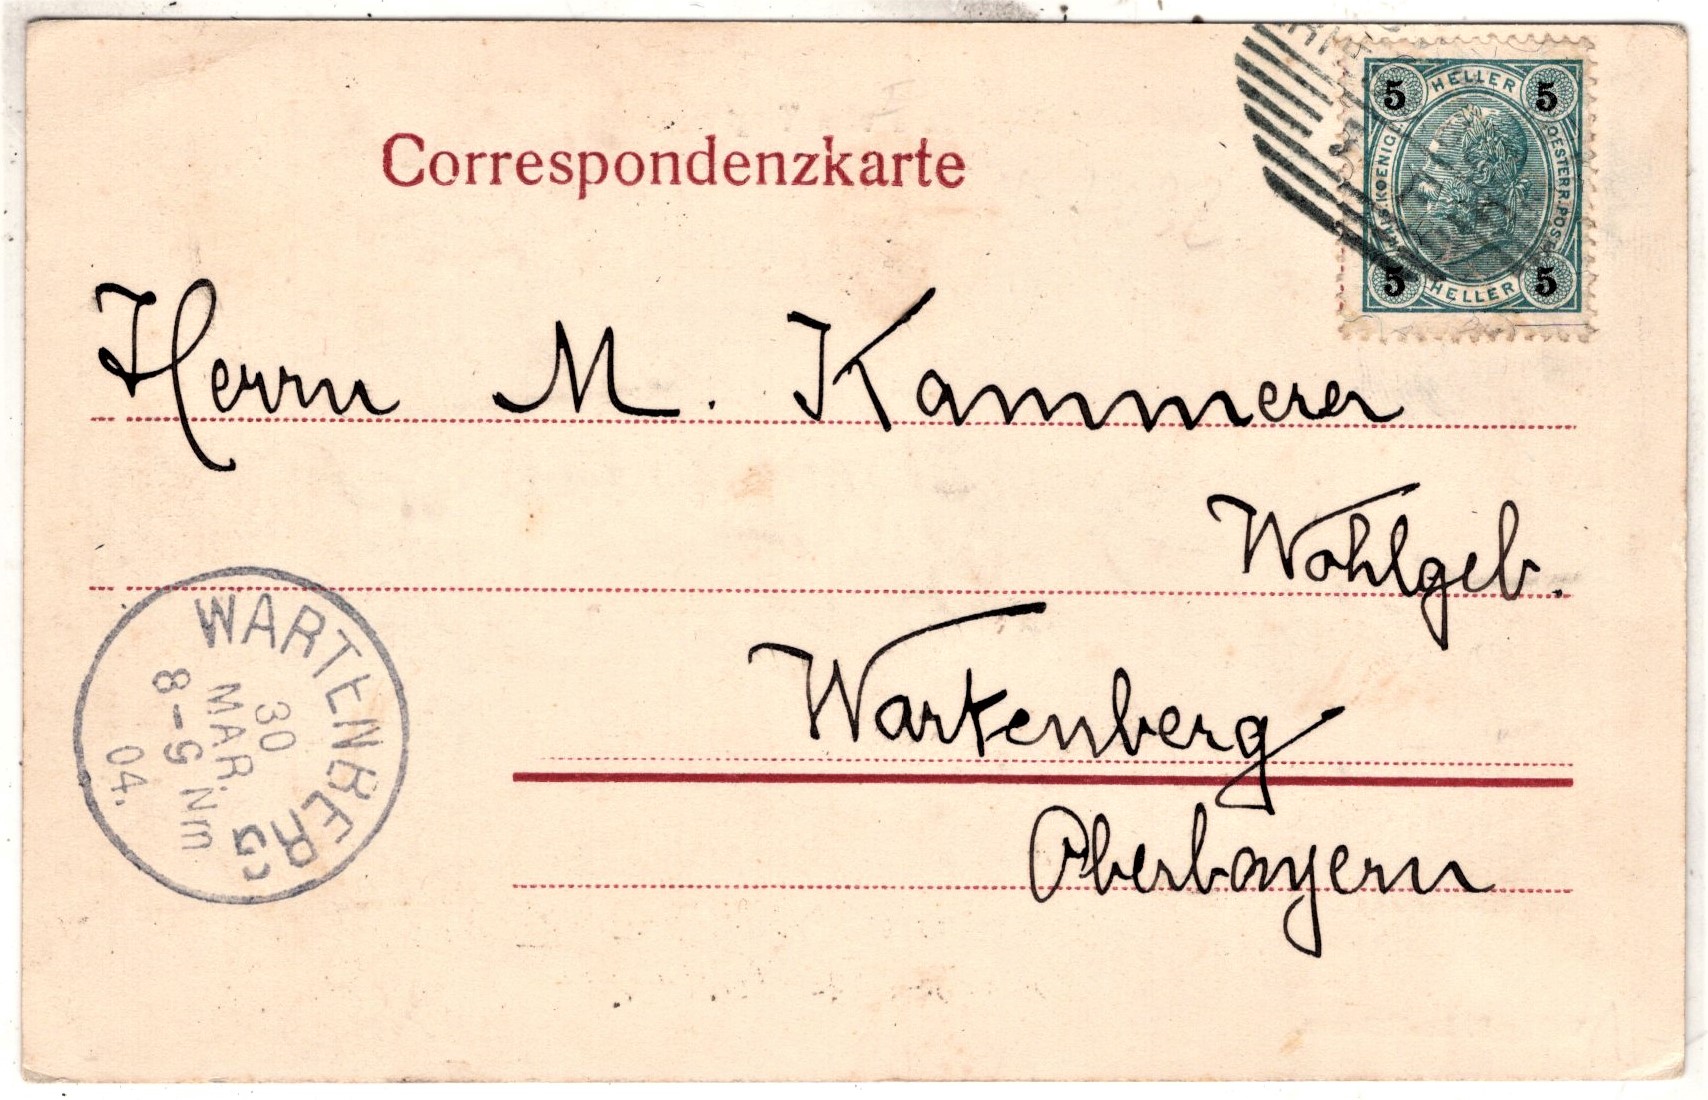 Correspondenzkarte
HELLER
5 5
KAIS.KOENIGL. OESTERR.POST
5 5
HELLER
Herrn M. Kammerer
Wohlgeb.
Wartenberg
Oberbayern
WARTENBERG
30
MAR.
8-9 Nm
04.